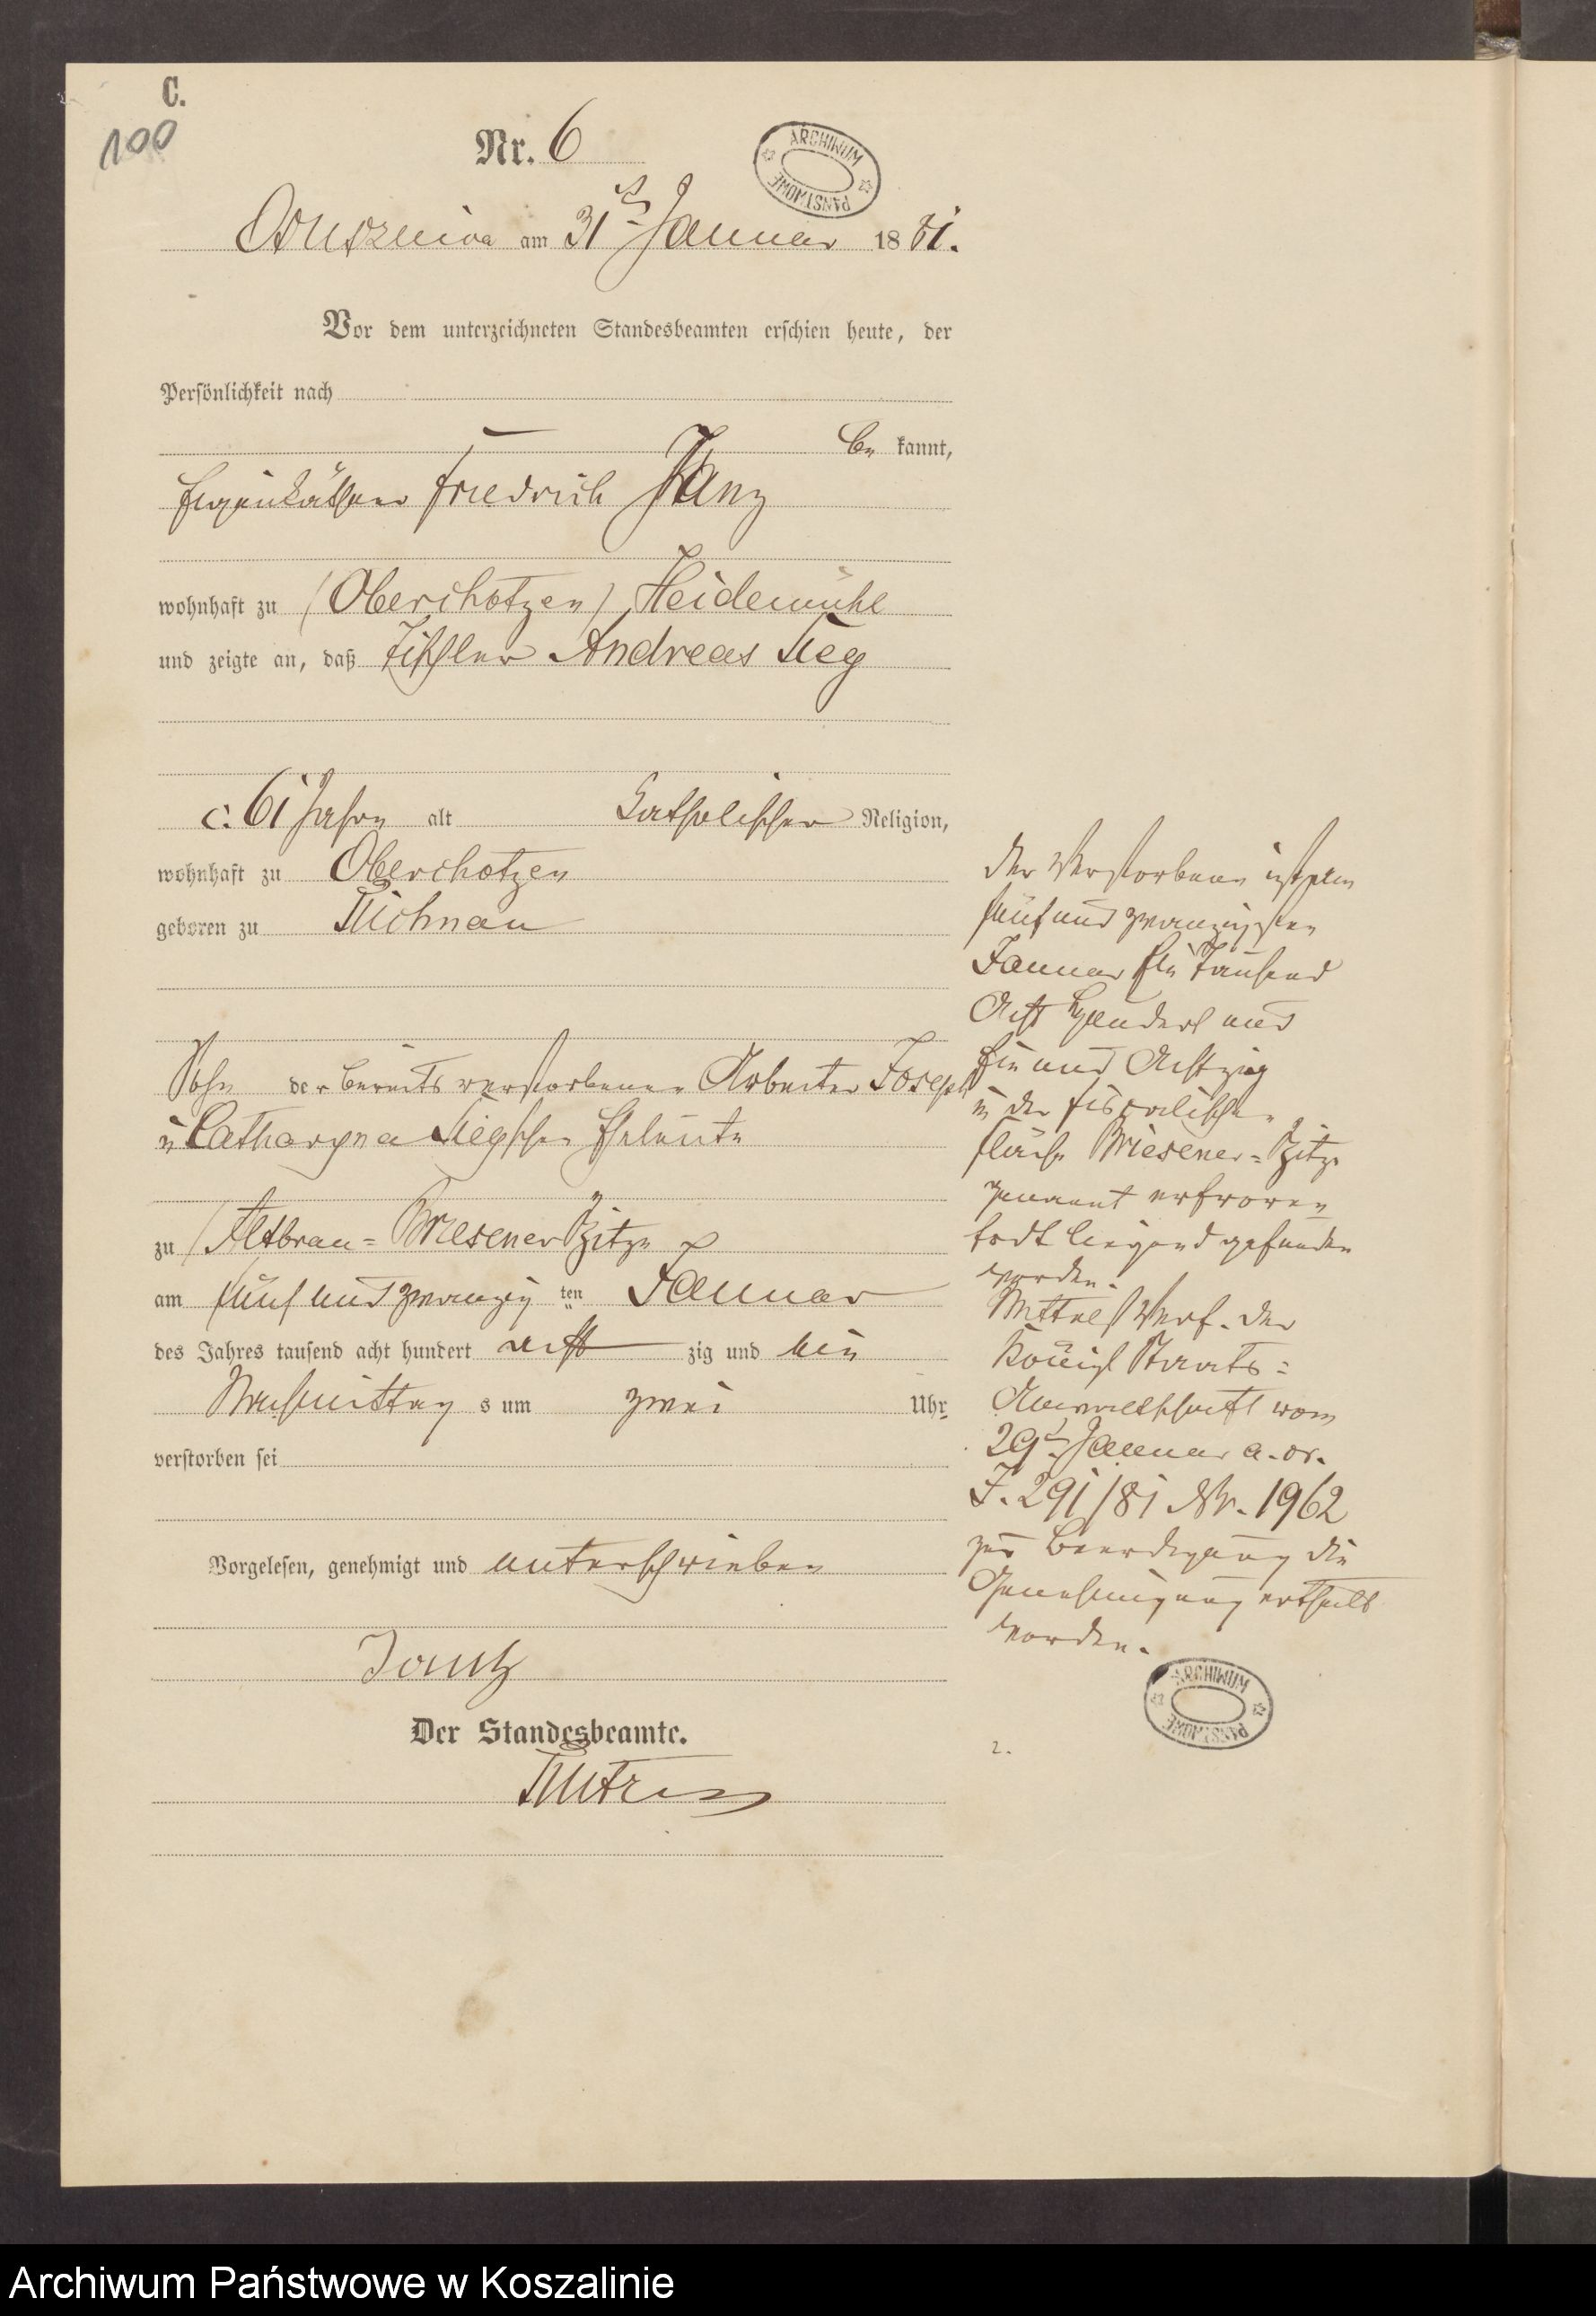 C.
100
Nr. 6
ARCHIWUM PAŃSTWOWE
am 31ts Januar 1881.
Vor dem unterzeichneten Standesbeamten erschien heute, der
Persönlichkeit nach
be kannt,
Eigenkäthner Friedrich
wohnhaft zu (Oberchotzen) Heidemühl
und zeigte an, daß Tischler Andreas Sieg
c. 61 Jahre alt katholischer Religion,
wohnhaft zu Oberchotzen
geboren zu
Sohn der bereits verstorbenen Arbeiter Joseph
u Catharyna Siegschen Eheleute
zu Briesener Zitze
am fünf und zwanzig ten Januar
des Jahres tausend acht hundert acht zig und ein
Nachmittag s um zwei Uhr
verstorben sei
Vorgelesen, genehmigt und unterschrieben
Der Standesbeamte.
der Verstorbene ist am
fünf und zwanzigsten
Januar Ein Tausend
Acht Hundert und
Ein und Achtzig
in der fiscalischen
Fläche Briesener=Zitze
genannt erfroren
todt liegend gefunden
worden.
Mittelst Verf. der
Königl Staats=
Anwaltschaft vom
29t Januar a. cr.
J. 291/81 Nr. 1962
zur Beerdigung die
Genehmigung ertheilt
worden.
ARCHIWUM PAŃSTWOWE
2.
Archiwum Państwowe w Koszalinie